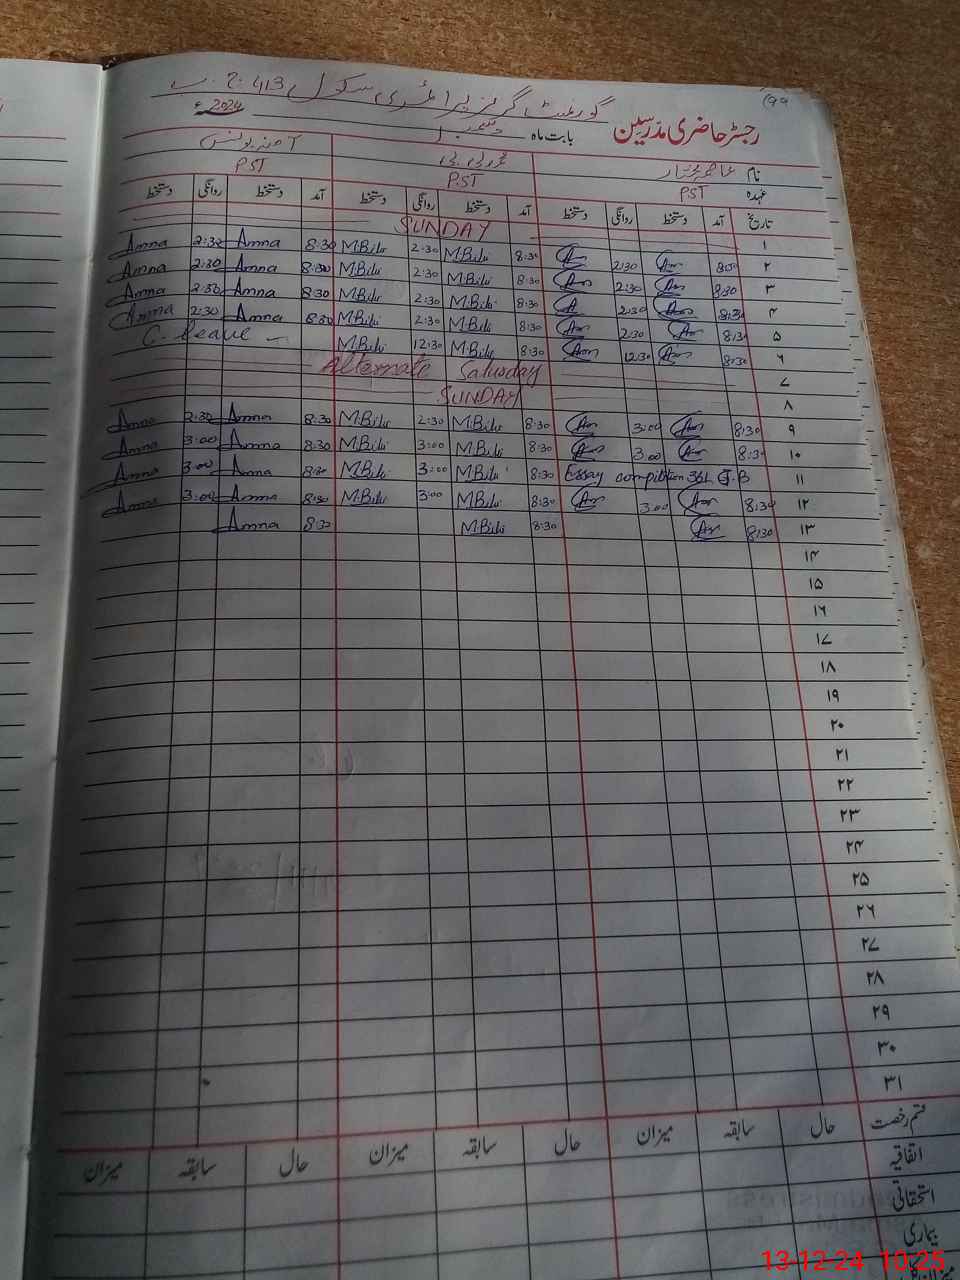 گورنمنٹ گرلز پرائمری سکول 413 ج ب
رجسٹر حاضری مدرسین بابت ماہ دسمبر 2024ء
نام
عہدہ PST P.ST P.ST
تاریخ آمد دستخط روانگی دستخط آمد دستخط روانگی دستخط آمد دستخط روانگی دستخط
۱ SUNDAY
۲ 8:30 2:30 8:30 M.Bibi 2:30 M.Bibi 8:30 Amna 2:30 Amna
۳ 8:30 2:30 8:30 M.Bibi 2:30 M.Bibi 8:30 Amna 2:30 Amna
۴ 8:30 2:30 8:30 M.Bibi 2:30 M.Bibi 8:30 Amna 2:30 Amna
۵ 8:30 2:30 8:30 M.Bibi 2:30 M.Bibi 8:30 Amna 2:30 Amna
۶ 8:30 12:30 8:30 M.Bibi 12:30 M.Bibi C. leave
۷ Alternate Saturday
۸ SUNDAY
۹ 8:30 3:00 8:30 M.Bibi 2:30 M.Bibi 8:30 Amna 2:30 Amna
۱۰ 8:30 3:00 8:30 M.Bibi 3:00 M.Bibi 8:30 Amna 3:00 Amna
۱۱ Essay compitition 361 G.B 8:30 M.Bibi 3:00 M.Bibi 8:30 Amna 3:00 Amna
۱۲ 8:30 3:00 8:30 M.Bibi 3:00 M.Bibi 8:30 Amna 3:00 Amna
۱۳ 8:30 8:30 M.Bibi 8:30 Amna
۱۴
۱۵
۱۶
۱۷
۱۸
۱۹
۲۰
۲۱
۲۲
۲۳
۲۴
۲۵
۲۶
۲۷
۲۸
۲۹
۳۰
۳۱
قسم رخصت حال سابقہ میزان حال سابقہ میزان حال سابقہ میزان
اتفاقیہ
استحقاقی
بیماری
13-12-24 10:25